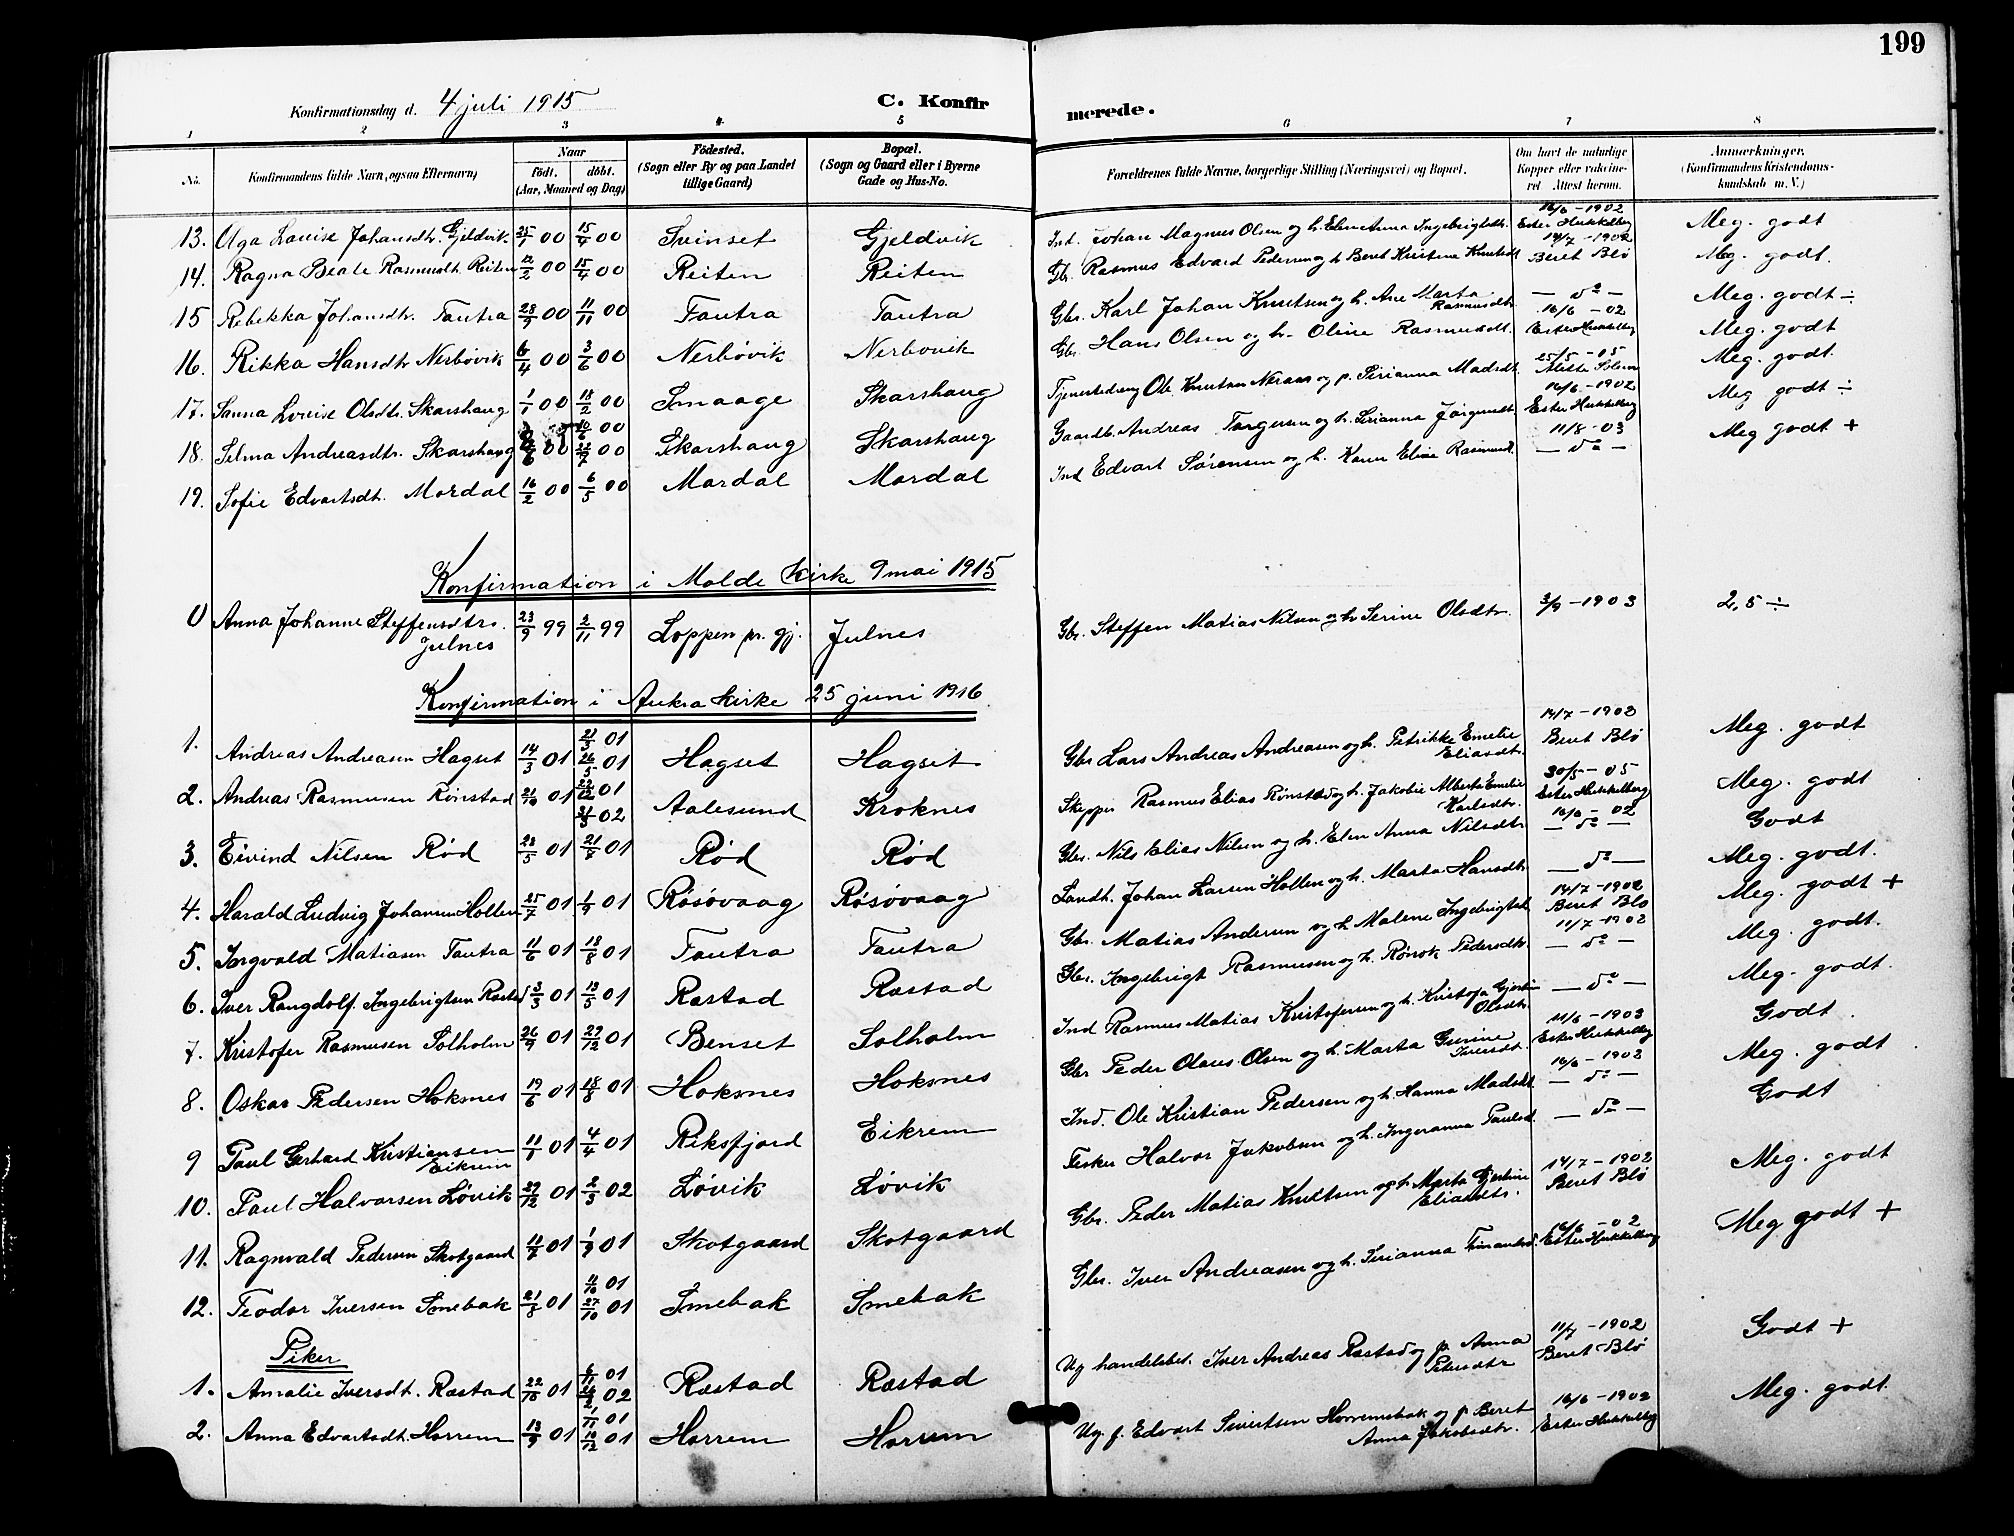 199
Konfirmationsdag d. 4 juli 1915 C. Konfirmerede.
1 2 3 4 5 6 7 8
No. Konfirmandens fulde Navn, ogsaa Efternavn) Naar födt. döbt. (Aar, Maaned og Dag) Födested. (Sogn eller By og paa Landet tillige Gaard) Bopæl. (Sogn og Gaard eller i Byerne Gade og Hus-No. Forældrenes fulde Navne, borgerlige Stilling (Næringsvei) og Bopæl. Om havt de naturlige Kopper eller vaccineret Attest herom. Anmærkninger. (Konfirmandens Kristendomskundskab m. V.)
13. Olga Louise Johansdtr. Gjeldvik 25/1 00 15/4 00 Svinset Gjeldvik Ind. Johan Magnus Olsen og h. Elen Anna Ingebrigtsdtr. 16/6 - 1902 Ester Hukkelberg Meg. godt
14. Ragna Beate Rasmusdt. Reiten 12/2 00 15/4 00 Reiten Reiten Gbr. Rasmus Edvard Pedersen og h. Beret Kristine Knutsdt. 14/7 - 1902 Beret Blø Meg. godt.
15 Rebekka Johansdtr. Tautra 28/9 00 11/11 00 Tautra Tautra Gbr. Karl Johan Knutsen og h. Ane Marta Rasmusdtr. — do — Meg. godt ÷
16. Rikka Hansdtr Nerbøvik 6/4 00 3/6 00 Nerbøvik Nerbøvik Gbr. Hans Olsen og h. Oline Rasmusdt. 16/6 - 02 Ester Hukkelberg Meg. godt
17. Sanna Lovise Olsdtr. Skarshaug 1/1 00 18/2 00 Smaage Skarshaug Tjenestedreng Ole Knutsen Neraas og p. Serianna Madsdt. 25/5 - 05 Meg. godt.
18. Selma Andreasdtr. Skarshaug 00 10/6 00 22/7 00 Skarshaug Skarshaug Gaardb. Andreas Torgersen og h. Serianna Jørgensdt. 16/6 - 1902 Ester Hukkelberg Meg godt ÷
19. Sofie Edvartsdt. Mordal 16/2 00 6/5 00 Mordal Mordal Ind Edvart Sørensen og h. Karen Eline Rasmusdt. 11/8 - 03 — do — Meg godt +
Konfirmation i Molde Kirke 9 mai 1915
0 Anna Johanne Steffensdtr. Julnes 23/9 99 2/11 99 Loppen pr. gj. Julnes Gbr. Steffen Matias Nilsen og h. Serine Olsdtr. 3/9 - 1903 2,5 ÷
Konfirmation i Aukra kirke 25 juni 1916
1. Andreas Andreasen Hagset 14/3 01 21/3 01 26/5 01 Hagset Hagset Gbr Lars Andreas Andreasen og h. Petrikke Emelie Eliasdtr. 14/7 - 1902 Beret Blø Meg. godt
2. Andreas Rasmusen Rønstad 21/10 01 22/12 01 31/3 02 Aalesund Kroknes Skipper Rasmus Elias Rønstad og h. Jakobie Alberta Emelie Karlsdtr. 30/5 - 05 Ester Hukkelberg Meg. godt
3. Eivind Nilsen Rød 28/5 01 21/7 01 Rød Rød Gbr. Nils Elias Nilsen og h. Elen Anna Nilsdtr 16/6 02 — do — Godt
4. Harald Ludvig Johansen Hollen 25/7 01 1/9 01 Røsøvaag Røsøvaag Landh. Johan Larsen Hollen og h. Marta Hansdtr. — do — Meg. godt.
5. Ingvald Matiasen Tautra 11/6 01 18/8 01 Tautra Tautra Gbr. Matias Andersen og h. Malene Ingebrigtsd. 14/7 - 1902 Beret Blø Meg. godt +
6. Iver Rangdolf Ingebrigtsen Røstad 3/3 01 13/5 01 Røstad Røstad Gbr. Ingebrigt Rasmusen og h. Rønok Pedersdtr. 11/7 - 1902 — do — Meg. godt.
7. Kristofer Rasmusen Solholm 26/9 01 29/12 01 Benset Solholm Ind Rasmus Matias Kristofersen og h. Kristofa Gjertine Olsdtr. — do — Meg. godt.
8. Oskar Pedersen Hoksnes 19/6 01 18/8 01 Hoksnes Hoksnes Gbr Peder Olaus Olsen og h. Marta Gurine Iversdt. 11/6 - 1903 Ester Hukkelberg Godt.
9 Paul Gerhard Kristiansen Eikrem 11/1 01 4/4 01 Riksfjord Eikrem Ind. Ole Kristian Pedersen og h. Hanna Madsdt. 16/6 - 1902 — do — Meg. godt
10. Paul Halvorsen Løvik 29/12 01 2/3 02 Løvik Løvik Fisker Halvor Jakobsen og h. Ingeranna Paulsd. — do — Godt
11. Ragnvald Pedersen Skotgaard 11/7 01 1/9 01 Skotgaard Skotgaard Gbr. Peder Matias Knudtsen og h. Marta Gjertine Eliasdtr. 14/7 - 1902 Beret Blø Meg. godt
12. Teodor Iversen Smebak 21/8 01 11/10 01 27/10 01 Smebak Smebak Gbr. Iver Andreasen og h. Serianna 16/6 - 02 Ester Hukkelberg Meg godt +
Piker
1. Amalie Iversdt. Røstad 22/10 01 6/11 01 02 Røstad Røstad Ug handelsbet. Iver Andreas Røstad og p. Anna Petersdtr 11/7 - 1902 Beret Blø Godt +
2. Anna Edvartsdt. Horrem 13/9 01 1/11 01 10/12 01 Horrem Horrem Ug. f. Edvart Sivertsen Horremsbak og p. Beret Anna Jakobsdtr. 16/6 - 1902 Ester Hukkelberg Meg. godt.